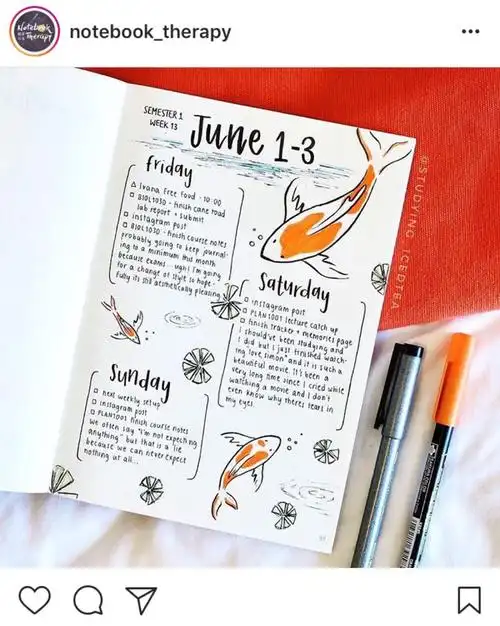 notebook_therapy
Notebook
Therapy
SEMESTER 1
WEEK 13
June 1-3
friday
Ivana Free Food - 10:00
BIOL1030 - finish cane toad
lab report + submit
instagram post
BIOL1030 - finish course notes
probably going to keep journal-
ing to a minimum this month
because exams - ugh! I'm going
for a change of style so hope-
fully its still aesthetically pleasing
Saturday
instagram post
PLAN1001 lecture catch up
finish tracker + memories page
I should've been studying and
I did but I just finished watch-
ing "love, simon" and it is such a
beautiful movie. It's been a
very long time since I cried while
watching a movie and I don't
even know why theres tears in
my eyes.
Sunday
next weekly setup
instagram post
PLAN1001 finish course notes
We often say "I'm not expecting
anything" but that is a lie
because we can never expect
nothing at all...
@STUDYING_ICEDTEA